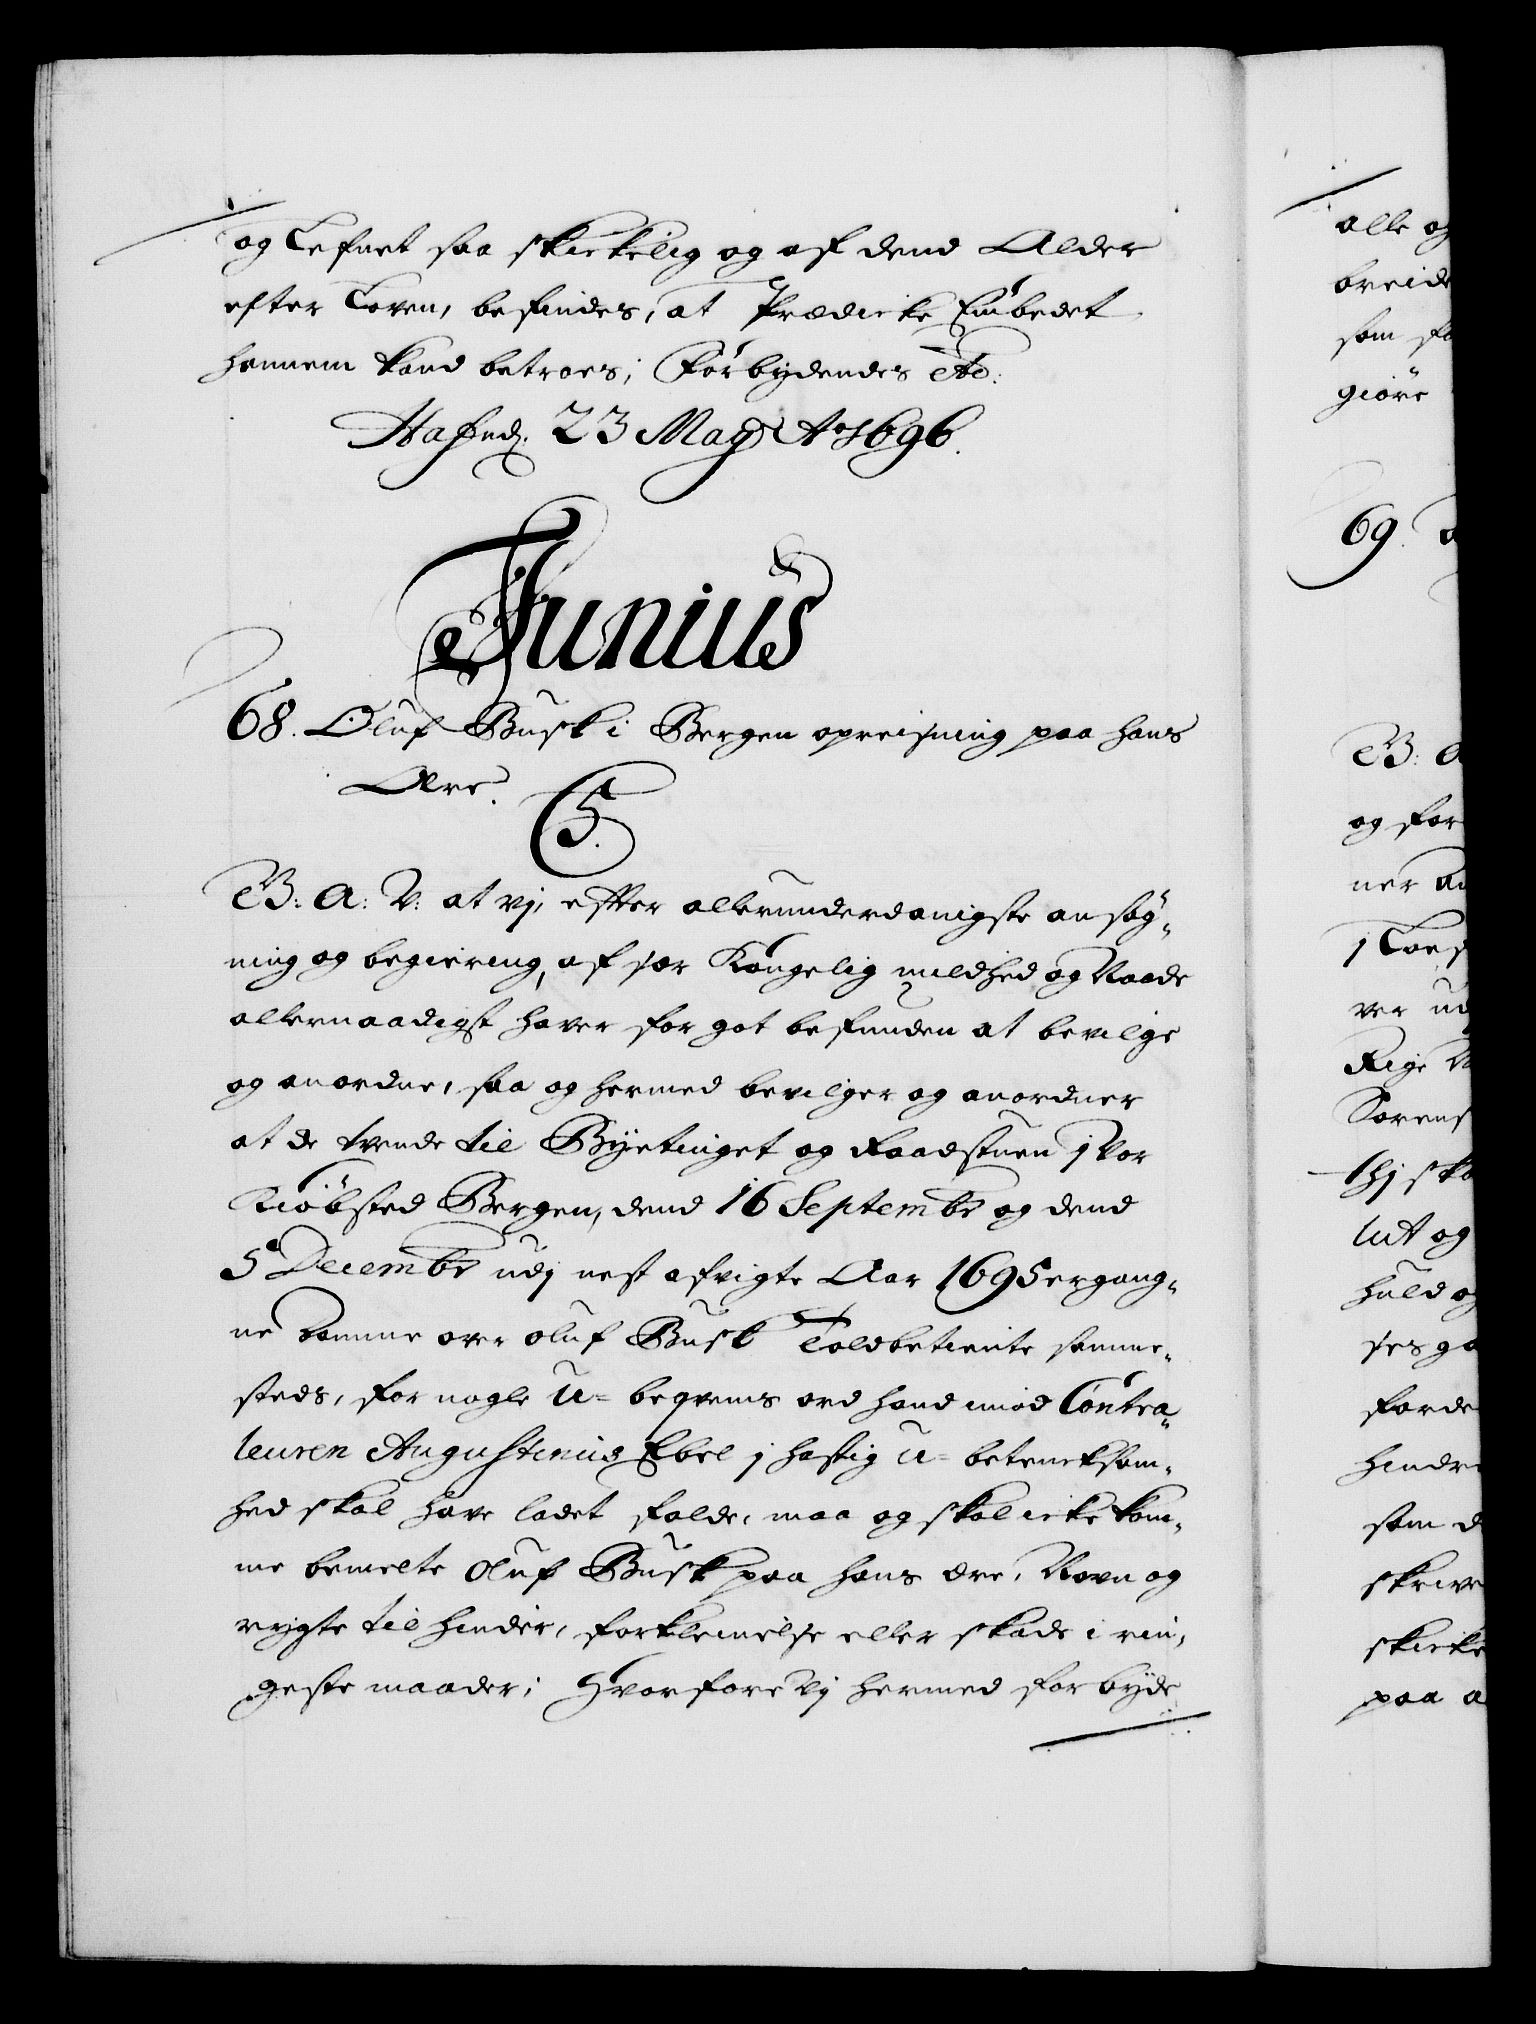 og Lefnet saa skickelig og af dend Alder
efter Loven, befindes, at Prædicke Embedet
hannem kand betroes; Forbydendes etc:
Hafnæ. 23 Maÿ Ao 1696.
Junius
68. Oluf Busk i Bergen opreisning paa hans
Ære.
C5.
G: A: V: at vj, efter allerunderdanigste ansøg-
ning og begiering, af sær Kongelig mildhed og Naade
allernaadigst haver for got befunden at bevilge
og anordne, saa og hermed bevilger og anordner
at de tvende til Byetinget og Raadstuen j Vor
Kiøbsted Bergen, dend 16 Septembr og dend
5 Decembr udj nest afvigte Aar 1695 ergang-
ne Domme over Oluf Busk Toldbetiente samme-
steds, for nogle u-beqvems ord hand imod Contra-
leuren Augustinus Ebel j hastig u-betencksom-
hed skal have ladet falde, maa og skal icke kom-
me bemelte Oluf Busk paa hans ære, Navn og
rygte til hinder, forkleinelse eller skade i rin-
geste maader; Hvorfore Vj hermed forbyde
alle og
breide
som fo
giøre
69.
G: A
og for
ner
j
ver ud
Rige N
Sørens
thj ska
lut og
huld og
ses ga
forde
hindr
som d
skrive
skicke
paa a